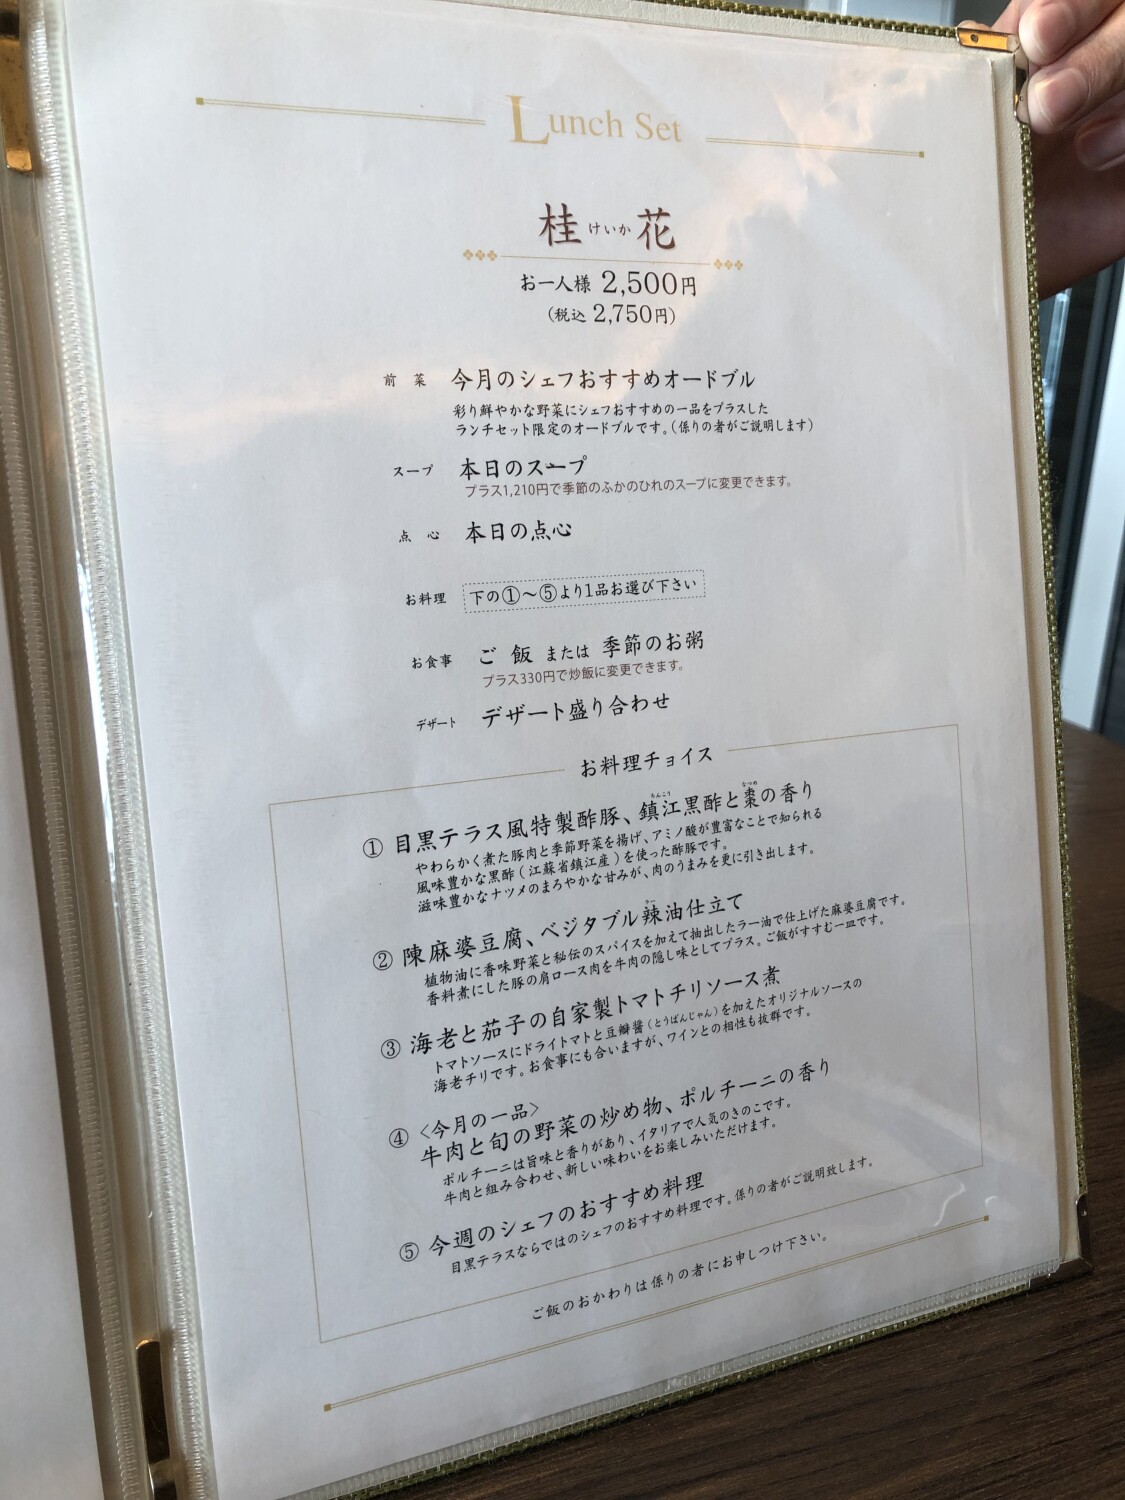 Lunch Set
桂 けいか 花
お一人様 2,500円
(税込 2,750円)
前菜 今月のシェフおすすめオードブル
彩り鮮やかな野菜にシェフおすすめの一品をプラスした
ランチセット限定のオードブルです。(係りの者がご説明します)
スープ 本日のスープ
プラス1,210円で季節のふかのひれのスープに変更できます。
点心 本日の点心
お料理 下の①～⑤より1品お選び下さい
お食事 ご飯 または 季節のお粥
プラス330円で炒飯に変更できます。
デザート デザート盛り合わせ
お料理チョイス
① 目黒テラス風特製酢豚、鎮江黒酢と棗の香り
やわらかく煮た豚肉と季節野菜を揚げ、アミノ酸が豊富なことで知られる
風味豊かな黒酢(江蘇省鎮江産)を使った酢豚です。
滋味豊かなナツメのまろやかな甘みが、肉のうまみを更に引き出します。
② 陳麻婆豆腐、ベジタブル辣油仕立て
植物油に香味野菜と秘伝のスパイスを加えて抽出したラー油で仕上げた麻婆豆腐です。
香料煮にした豚の肩ロース肉を牛肉の隠し味としてプラス。ご飯がすすむ一皿です。
③ 海老と茄子の自家製トマトチリソース煮
トマトソースにドライトマトと豆瓣醤(とうばんじゃん)を加えたオリジナルソースの
海老チリです。お食事にも合いますが、ワインとの相性も抜群です。
④ 〈今月の一品〉
牛肉と旬の野菜の炒め物、ポルチーニの香り
ポルチーニは旨味と香りがあり、イタリアで人気のきのこです。
牛肉と組み合わせ、新しい味わいをお楽しみいただけます。
⑤ 今週のシェフのおすすめ料理
目黒テラスならではのシェフのおすすめ料理です。係りの者がご説明致します。
ご飯のおかわりは係りの者にお申しつけ下さい。